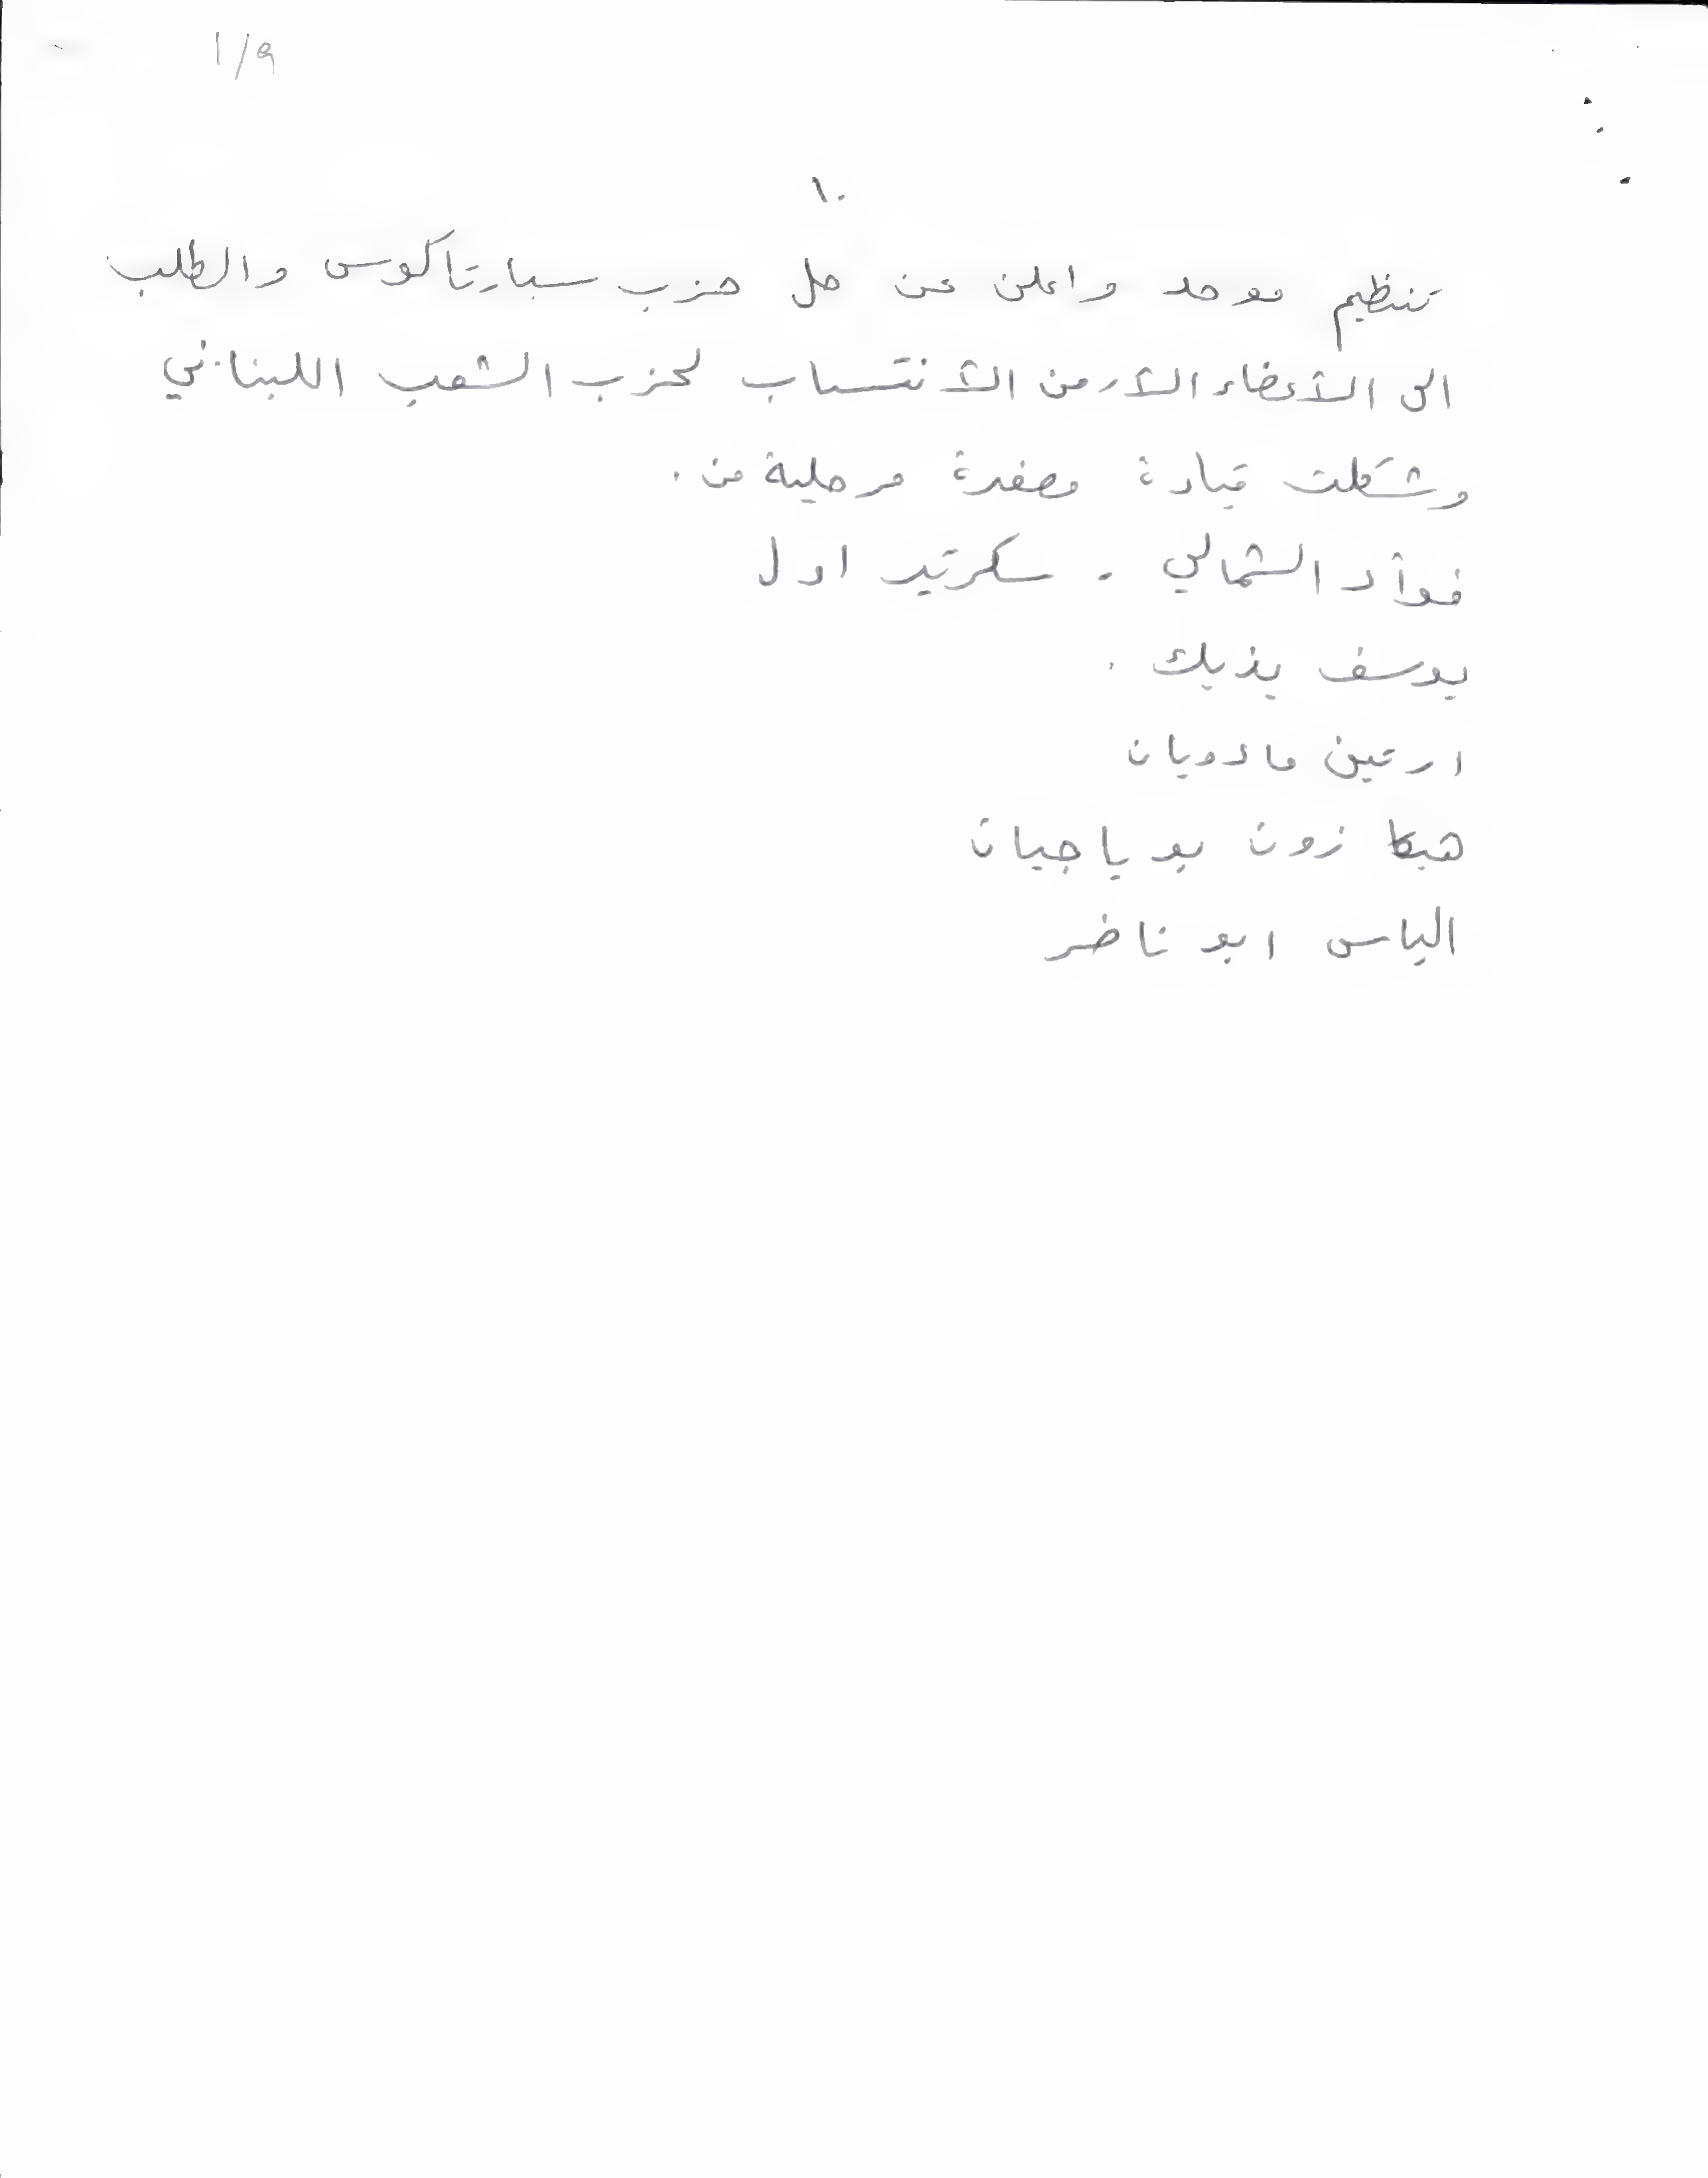 ١/٩
١٠
تنظيم موحد واعلن عن حل حزب سبارتاكوس والطلب
الى الأعضاء الأرمن الأنتساب لحزب الشعب اللبناني
وشكلت قيادة مصغرة مرحلية من .
فوأد الشمالي . سكرتير اول
يوسف يزبك .
ارتين مادويان
هيكازون بوياجيان
الياس ابو ناضر